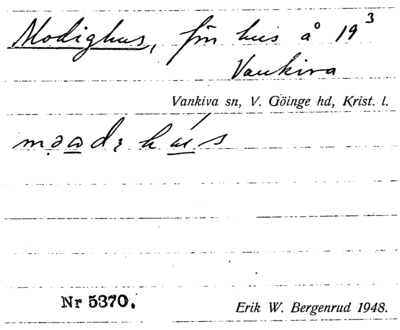 Modighus, fm hus å 19³
Vankiva
Vankiva sn, V. Göinge hd, Krist. l.
Nr 5370.
Erik W. Bergenrud 1948.